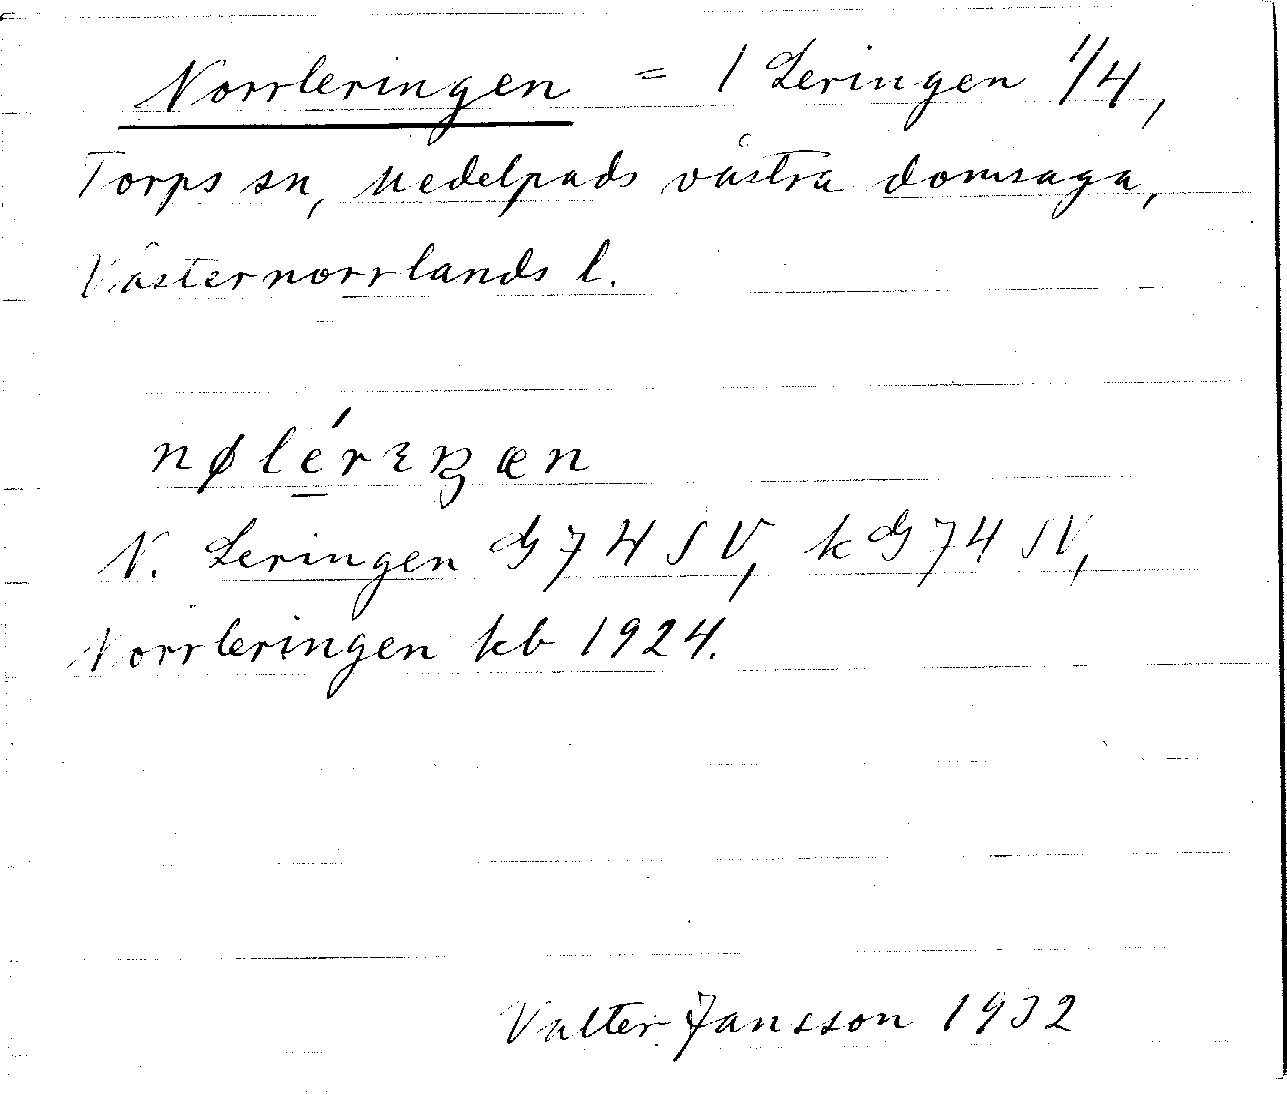 Norrleringen = 1 Leringen 1/4,
Torps sn, Medelpads västra domsaga,
Västernorrlands l.
nølérɛŋæn
N. Leringen G 74 SV, k G 74 SV,
Norrleringen kb 1924.
Valter Jansson 1932